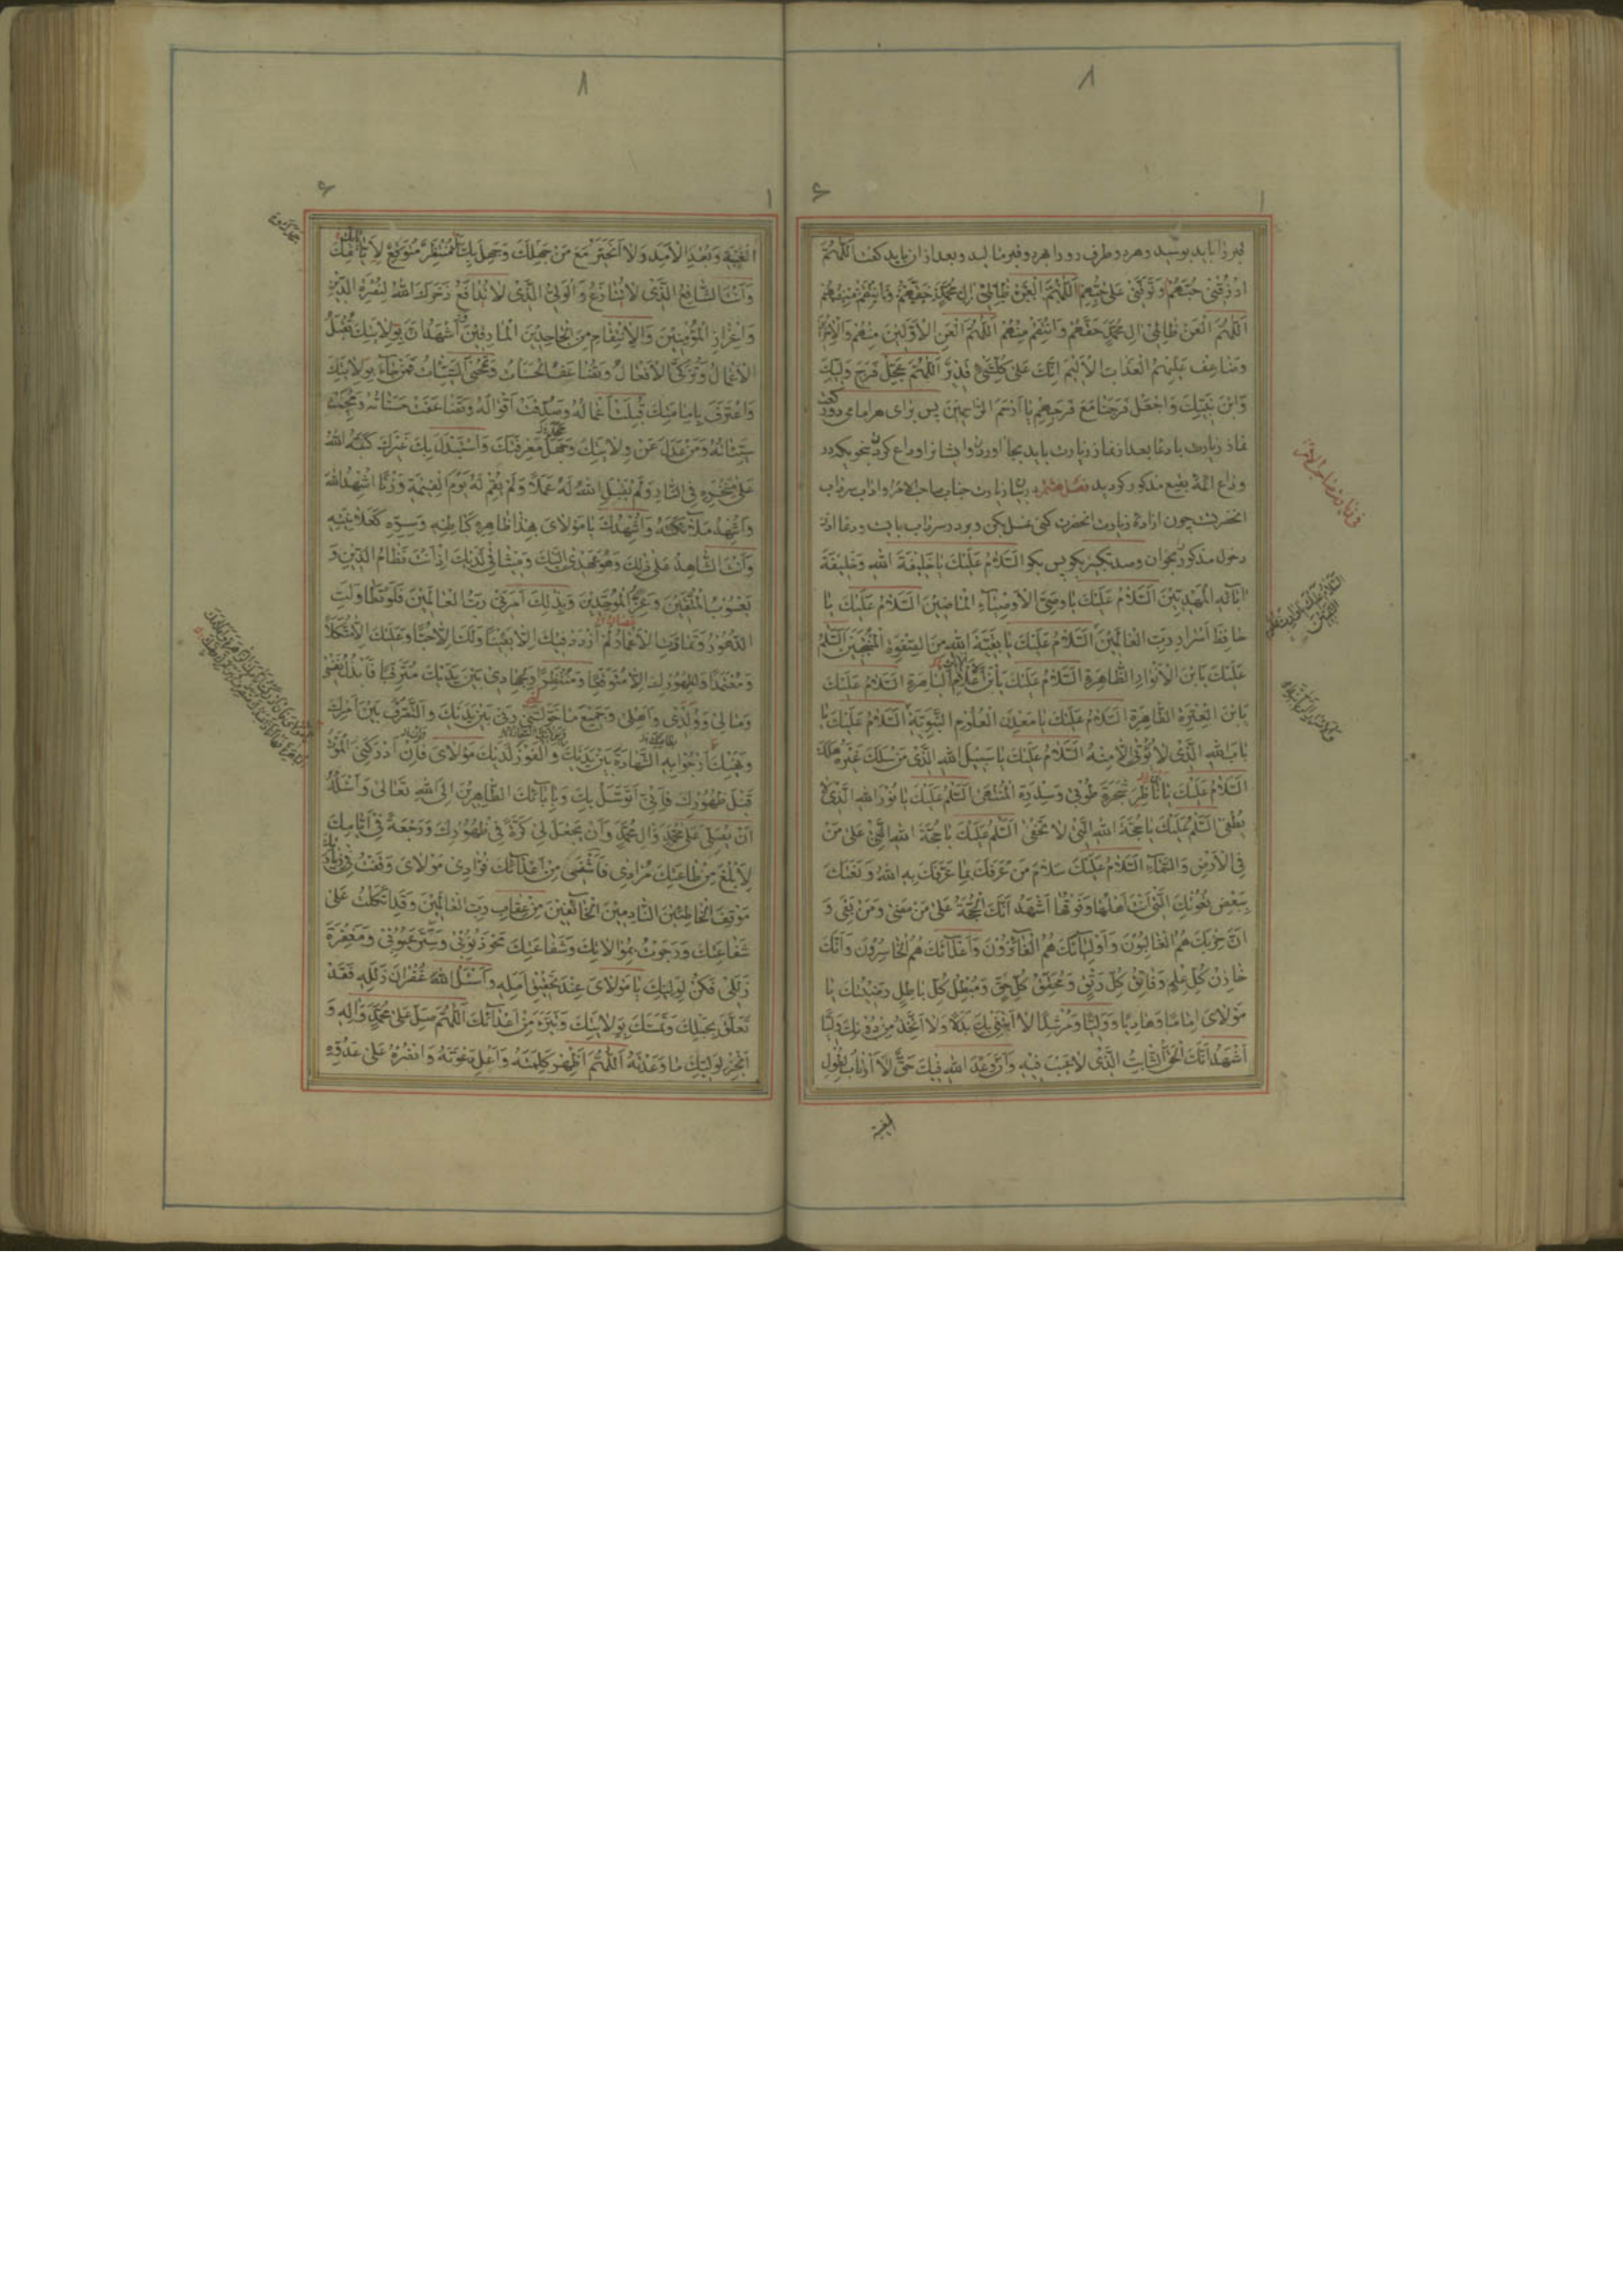 قبر را باید بوسید و هر دو طرف رو را بر دو قبر مالید و بعد از ان باید گفت اَللّهُمَّ
ارْزُقْنی حُبَّهُمْ وَتَوَفَّنی عَلی حُبِّهِمْ اَللّهُمَّ الْعَنْ ظالِمی الِ مُحَمَّدٍ حَقَّهُمْ وَانْتَقِمْ مِنْهُمْ
اَللّهُمَّ الْعَنْ ظالِمی الِ مُحَمَّدٍ حَقَّهُمْ وَانْتَقِمْ مِنْهُمْ اَللّهُمَّ الْعَنِ الْاَوَّلینَ مِنْهُمْ وَالْاخِرینَ
وَضاعِفْ عَلَیْهِمُ الْعَذابَ الْاَلیمَ اِنَّكَ عَلی كُلِّ شَیْءٍ قَدیرٌ اَللّهُمَّ عَجِّلْ فَرَجَ وَلِیِّكَ
وَابْنِ نَبِیِّكَ وَاجْعَلْ فَرَجَنا مَعَ فَرَجِهِمْ یا اَرْحَمَ الرّاحِمینَ پس برای هر امامی دو ركعت
نماز زیارت با دعا بعد از نماز زیارت باید بجا اورد و ایشانرا وداع كرد بنحویكه در
وداع ائمه بقیع مذكور گردید فصل هشتم در بیان زیارت جناب صاحب الامر و اداب سرداب
انحضرت چون اراده زیارت انحضرت كنی غسل بكن و برو در سرداب بایست و دعا اذن
دخول مذكور بخوان و صد تكبیر بگو پس بگو اَلسَّلامُ عَلَیْكَ یا خَلیفَةَ اللهِ وَخَلیفَةَ
ابائِهِ الْمَهْدِیّینَ اَلسَّلامُ عَلَیْكَ یا وَصِیَّ الْاَوْصِیاءِ الْماضینَ اَلسَّلامُ عَلَیْكَ یا
حافِظَ اَسْرارِ رَبِّ الْعالَمینَ اَلسَّلامُ عَلَیْكَ یا بَقِیَّةَ اللهِ مِنَ الصَّفْوَةِ الْمُنْتَجَبینَ اَلسَّلامُ
عَلَیْكَ یَابْنَ الْاَنْوارِ الظّاهِرَةِ اَلسَّلامُ عَلَیْكَ یَابْنَ الْاَعْلامِ الْباهِرَةِ اَلسَّلامُ عَلَیْكَ
یَابْنَ الْعِتْرَةِ الطّاهِرَةِ اَلسَّلامُ عَلَیْكَ یا مَعْدِنَ الْعُلُومِ النَّبَوِیَّةِ اَلسَّلامُ عَلَیْكَ یا
بابَ اللهِ الَّذی لا یُؤْتی اِلاّ مِنْهُ اَلسَّلامُ عَلَیْكَ یا سَبیلَ اللهِ الَّذی مَنْ سَلَكَ غَیْرَهُ هَلَكَ
اَلسَّلامُ عَلَیْكَ یا ناظِرَ شَجَرَةِ طُوبی وَسِدْرَةِ الْمُنْتَهی اَلسَّلامُ عَلَیْكَ یا نُورَ اللهِ الَّذی لا
یُطْفی اَلسَّلامُ عَلَیْكَ یا حُجَّةَ اللهِ الَّتی لا تَخْفی اَلسَّلامُ عَلَیْكَ یا حُجَّةَ اللهِ الَّتی عَلی مَنْ
فِی الْاَرْضِ وَالسَّماءِ اَلسَّلامُ عَلَیْكَ سَلامَ مَنْ عَرَفَكَ بِما عَرَّفَكَ بِهِ اللهُ وَنَعَتَكَ
بِبَعْضِ نُعُوتِكَ الَّتی اَنْتَ اَهْلُها وَفَوْقُها اَشْهَدُ اَنَّكَ الْحُجَّةُ عَلی مَنْ مَضی وَمَنْ بَقِیَ وَ
اَنَّ حِزْبَكَ هُمُ الْغالِبُونَ وَاَوْلِیائَكَ هُمُ الْفائِزُونَ وَاَعْدائَكَ هُمُ الْخاسِرُونَ وَاَنَّكَ
خازِنُ كُلِّ عِلْمٍ وَفاتِقُ كُلِّ رَتْقٍ وَمُحَقِّقُ كُلِّ حَقٍّ وَمُبْطِلُ كُلِّ باطِلٍ رَضیتُكَ یا
مَوْلایَ اِمامًا وَهادِیًا وَوَلِیًّا وَمُرْشِدًا لا اَبْتَغی بِكَ بَدَلًا وَلا اَتَّخِذُ مِنْ دُونِكَ وَلِیًّا
اَشْهَدُ اَنَّكَ الْحَقُّ الثّابِتُ الَّذی لا عَیْبَ فیهِ وَاَنَّ وَعْدَ اللهِ فیكَ حَقٌّ لا اَرْتابُ لِطُولِ
الغیبة
الْغَیْبَةِ وَبُعْدِ الْاَمَدِ وَلا اَتَحَیَّرُ مَعَ مَنْ جَهِلَكَ وَجَهِلَ بِكَ مُنْتَظِرٌ مُتَوَقِّعٌ لِاَیّامِكَ
وَاَنْتَ الشّافِعُ الَّذی لا تُنازَعُ وَالْوَلِیُّ الَّذی لا تُدافَعُ ذَخَرَكَ اللهُ لِنُصْرَةِ الدّینِ
وَاِعْزازِ الْمُؤْمِنینَ وَالْاِنْتِقامِ مِنَ الْجاحِدینَ الْمارِقینَ اَشْهَدُ اَنَّ بِوِلایَتِكَ تُقْبَلُ
الْاَعْمالُ وَتُزَكَّی الْاَفْعالُ وَتُضاعَفُ الْحَسَناتُ وَتُمْحَی السَّیِّئاتُ فَمَنْ جاءَ بِوِلایَتِكَ
وَاعْتَرَفَ بِاِمامَتِكَ قُبِلَتْ اَعْمالُهُ وَصُدِّقَتْ اَقْوالُهُ وَتَضاعَفَتْ حَسَناتُهُ وَمُحِیَتْ
سَیِّئاتُهُ وَمَنْ عَدَلَ عَنْ وِلایَتِكَ وَجَهِلَ مَعْرِفَتَكَ وَاسْتَبْدَلَ بِكَ غَیْرَكَ كَبَّهُ اللهُ
عَلی مَنْخَرِهِ فِی النّارِ وَلَمْ یَقْبَلِ اللهُ لَهُ عَمَلًا وَلَمْ یُقِمْ لَهُ یَوْمَ الْقِیمَةِ وَزْنًا اُشْهِدُ اللهَ
وَاُشْهِدُ مَلائِكَتَهُ وَاُشْهِدُكَ یا مَوْلایَ بِهذا ظاهِرُهُ كَباطِنِهِ وَسِرُّهُ كَعَلانِیَتِهِ
وَاَنْتَ الشّاهِدُ عَلی ذلِكَ وَهُوَ عَهْدی اِلَیْكَ وَمیثاقی لَدَیْكَ اِذْ اَنْتَ نِظامُ الدّینِ وَ
یَعْسُوبُ الْمُتَّقینَ وَعِزُّ الْمُوَحِّدینَ وَبِذلِكَ اَمَرَنی رَبُّ الْعالَمینَ فَلَوْ تَطاوَلَتِ
الدُّهُورُ وَتَمادَتِ الْاَعْمارُ لَمْ اَزْدَدْ فیكَ اِلاّ یَقینًا وَلَكَ اِلاّ حُبًّا وَعَلَیْكَ اِلاّ مُتَّكَلًا
وَمُعْتَمَدًا وَلِظُهُورِكَ اِلاّ مُتَوَقِّعًا وَمُنْتَظِرًا وَلِجِهادی بَیْنَ یَدَیْكَ مُتَرَقِّبًا فَاَبْذُلُ نَفْسی
وَمالی وَوَلَدی وَاَهْلی وَجَمیعَ ما خَوَّلَنی رَبّی بَیْنَ یَدَیْكَ وَالتَّصَرُّفَ بَیْنَ اَمْرِكَ
وَنَهْیِكَ اَرْجُوا بِهِ الشَّهادَةَ بَیْنَ یَدَیْكَ وَالْفَوْزَ لَدَیْكَ مَوْلایَ فَاِنْ اَدْرَكَنِیَ الْمَوْتُ
قَبْلَ ظُهُورِكَ فَاِنّی اَتَوَسَّلُ بِكَ وَبِابائِكَ الطّاهِرینَ اِلَی اللهِ تَعالی وَاَسْئَلُهُ
اَنْ یُصَلِّیَ عَلی مُحَمَّدٍ وَالِ مُحَمَّدٍ وَاَنْ یَجْعَلَ لی كَرَّةً فی ظُهُورِكَ وَرَجْعَةً فی اَیّامِكَ
لِاَبْلُغَ مِنْ طاعَتِكَ مُرادی فَاَشْفی مِنْ اَعْدائِكَ فُؤادی مَوْلایَ وَقَفْتُ فی زِیارَتِكَ
مَوْقِفَ الْخاطِئینَ النّادِمینَ الْخائِفینَ مِنْ عِقابِ رَبِّ الْعالَمینَ وَقَدِ اتَّكَلْتُ عَلی
شَفاعَتِكَ وَرَجَوْتُ بِمُوالاتِكَ وَشَفاعَتِكَ مَحْوَ ذُنُوبی وَسَتْرَ عُیُوبی وَمَغْفِرَةَ
زَلَلی فَكُنْ لِوَلِیِّكَ یا مَوْلایَ عِنْدَ تَحْقیقِ اَمَلِهِ وَاسْئَلِ اللهَ غُفْرانَ زَلَلِهِ فَقَدْ
تَعَلَّقَ بِحَبْلِكَ وَتَمَسَّكَ بِوِلایَتِكَ وَتَبَرَّءَ مِنْ اَعْدائِكَ اَللّهُمَّ صَلِّ عَلی مُحَمَّدٍ وَالِهِ وَ
اَنْجِزْ لِوَلِیِّكَ ما وَعَدْتَهُ اَللّهُمَّ اَظْهِرْ كَلِمَتَهُ وَاَعْلِ دَعْوَتَهُ وَانْصُرْهُ عَلی عَدُوِّهِ